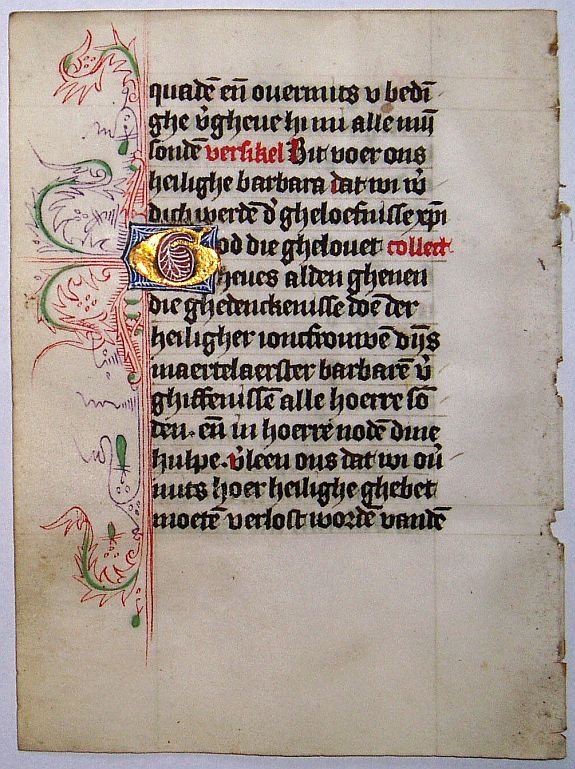 quadē eñ ouermits v bedī
ghe v̄gheue hi mi alle mijn
sonden versikel Bit voer ons
heilighe barbara dat wi w̄
dich werdē d' gheloefnisse xp̄i
God die ghelouet collect
heues alden ghenen
die ghedenckenisse doe der
heiligher ioncfrouwē dijs
maertelaerster barbarē v̄
ghiffenissē alle hoerre sō
dēn. eñ in hoerre nodē dine
hulpe. v̄leen ons dat wi ou̅
mits hoer heilighe ghebet
moetē verlost wordē vandē